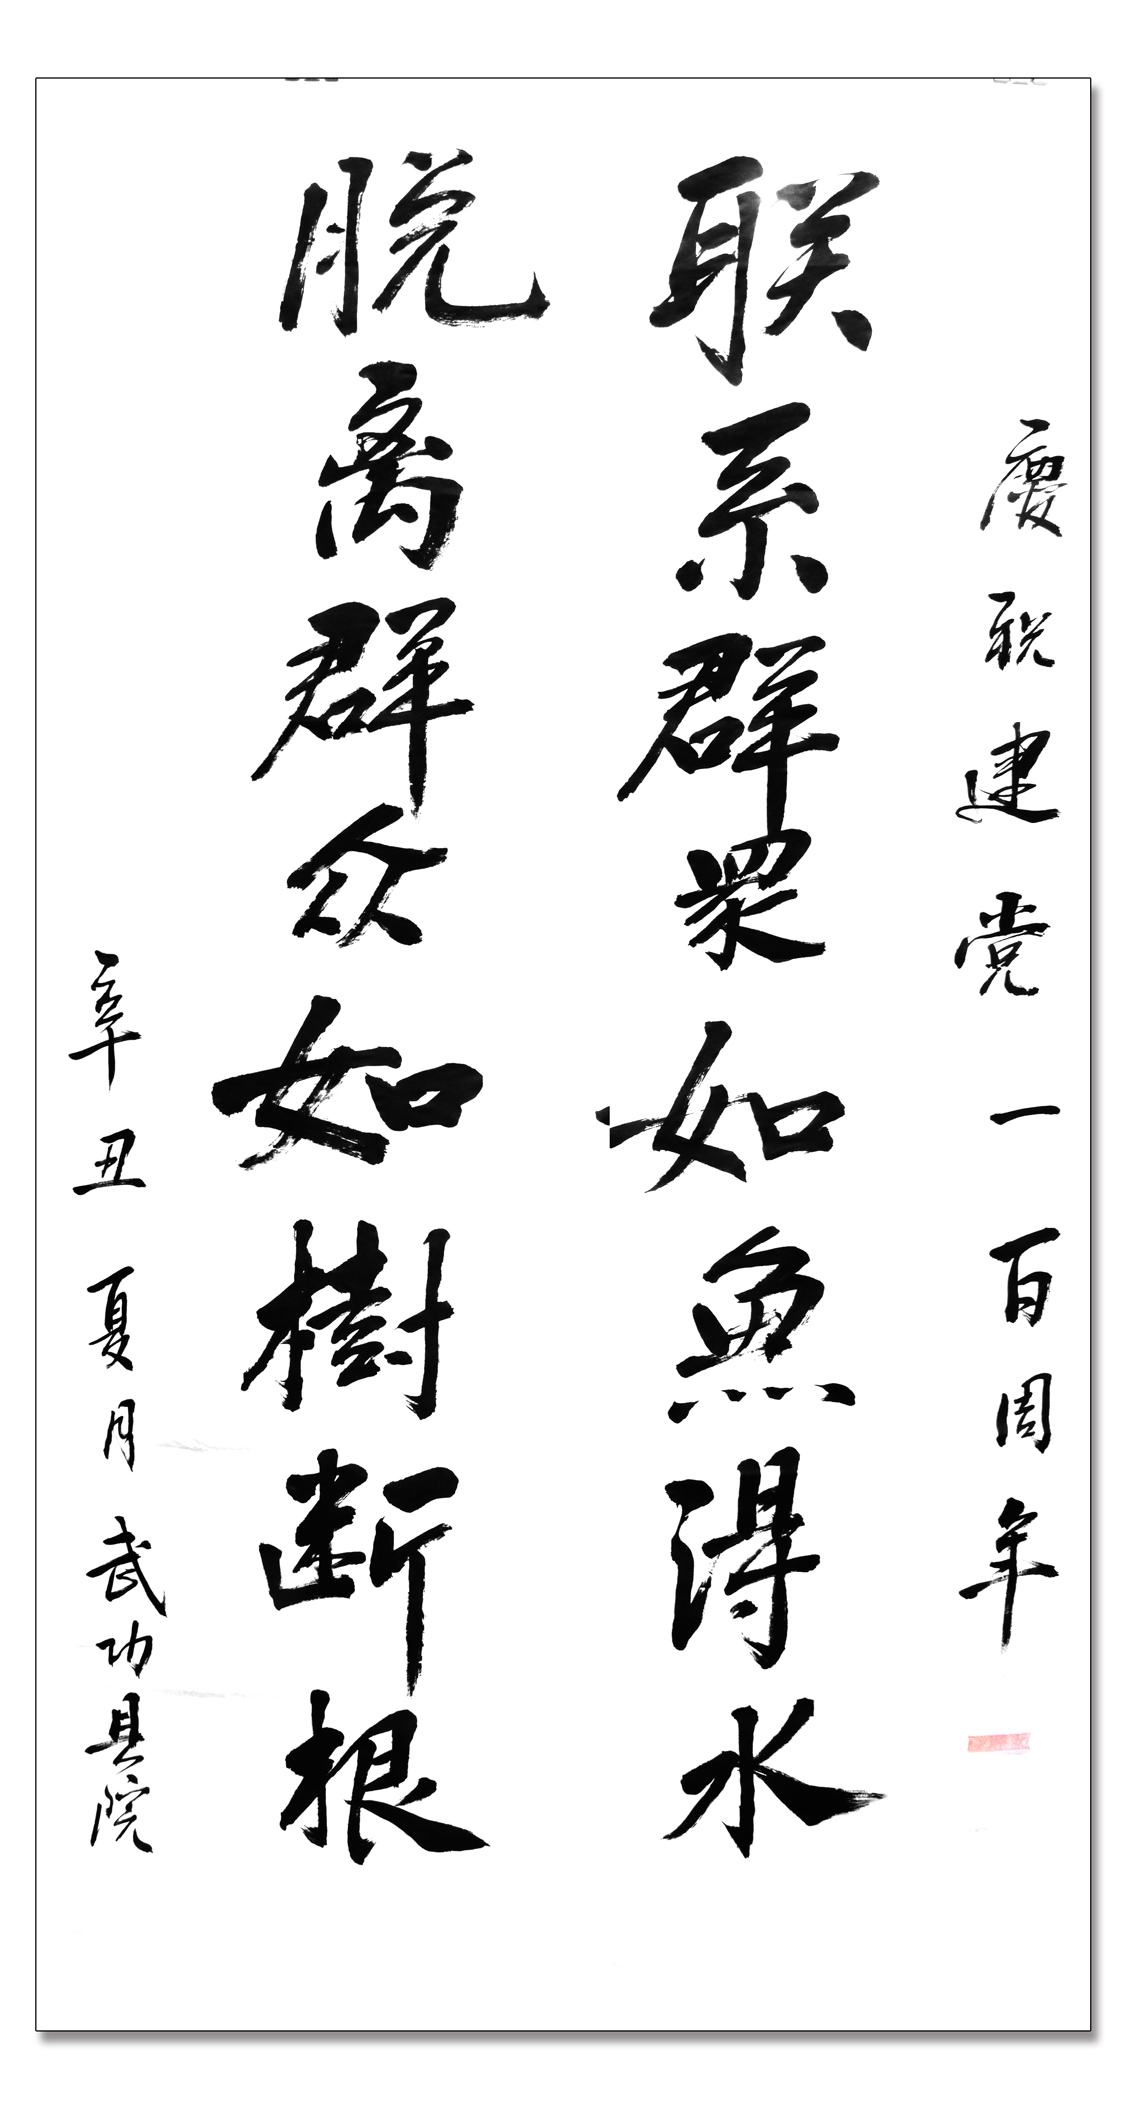 慶祝建党一百周年
联系群眾如魚得水
脱离群众如樹断根
辛丑夏月武功县院